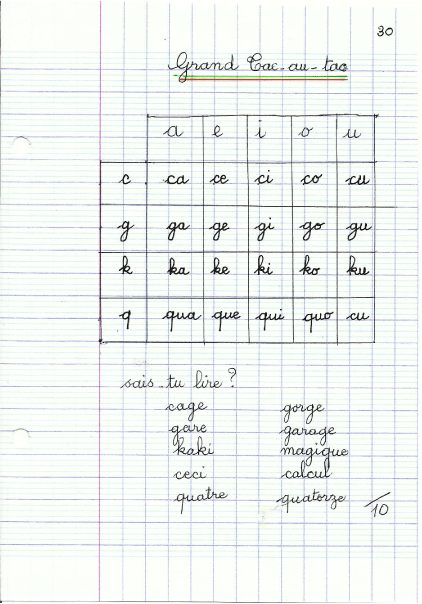 30
Grand Tac-au-tac
a e i o u
c ca ce ci co cu
g ga ge gi go gu
k ka ke ki ko ku
q qua que qui quo cu
sais-tu lire ?
cage gorge
gare garage
kaki magique
ceci calcul
quatre quatorze /10